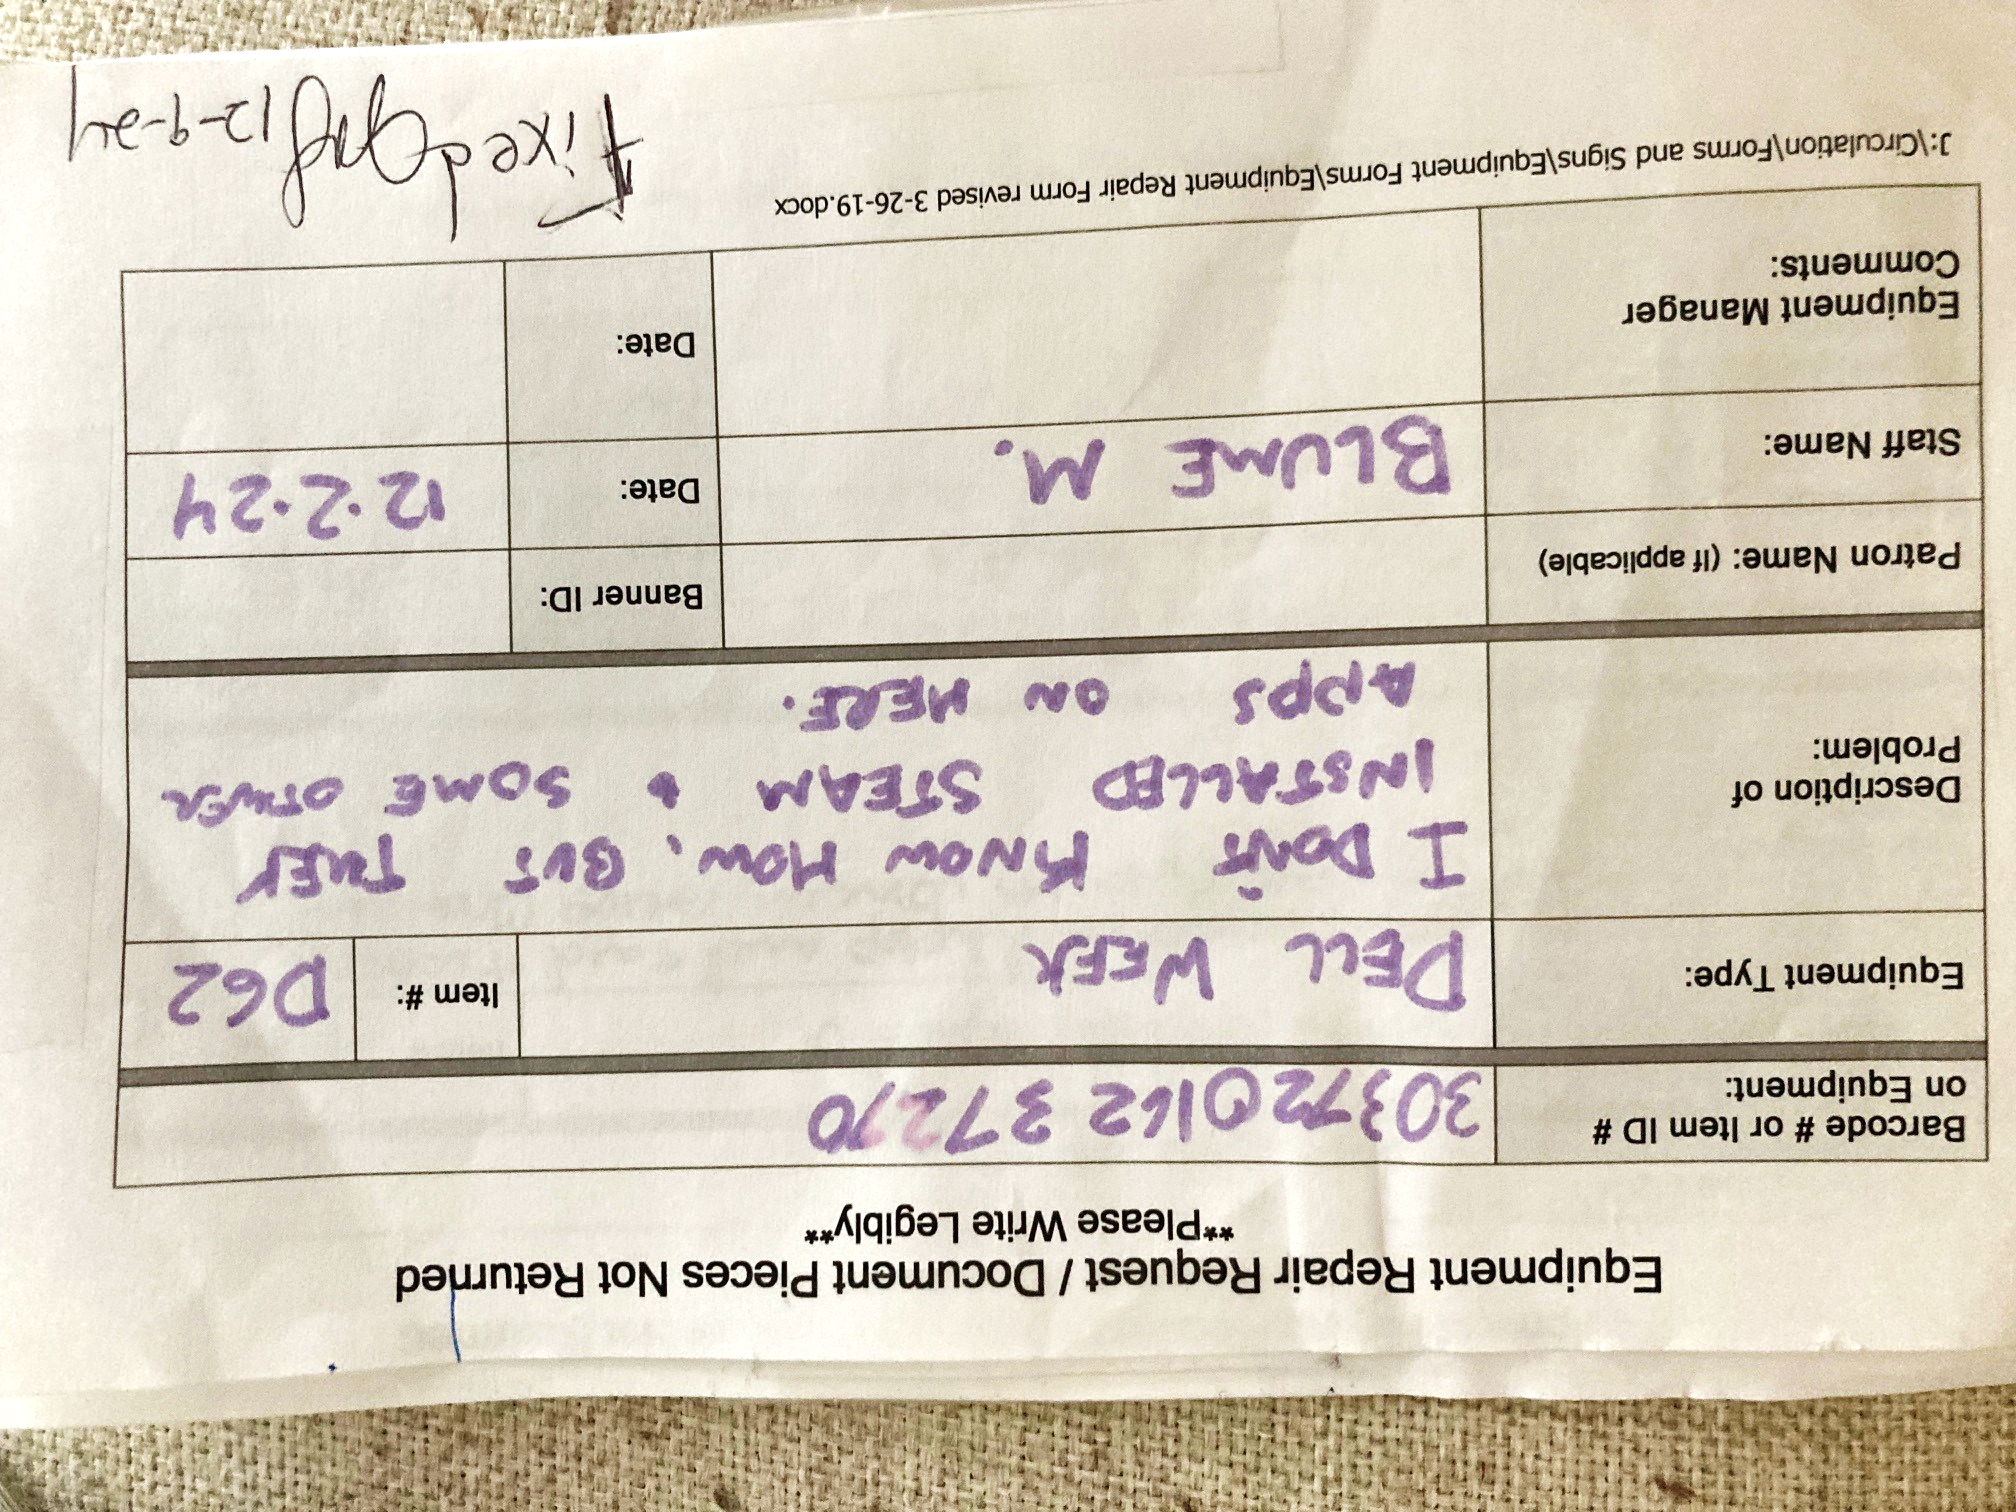 Equipment Repair Request / Document Pieces Not Returned
**Please Write Legibly**
Barcode # or Item ID #
on Equipment:
30372016237270
Equipment Type:
DELL WEEK
Item #:
D62
Description of
Problem:
I DON'T KNOW HOW, BUT THEY
INSTALLED STEAM & SOME OTHER
APPS ON HERE.
Patron Name: (If applicable)
Banner ID:
Staff Name:
BLUME M.
Date:
12.2.24
Equipment Manager
Comments:
Date:
J:\Circulation\Forms and Signs\Equipment Forms\Equipment Repair Form revised 3-26-19.docx
Fixed 12-9-24